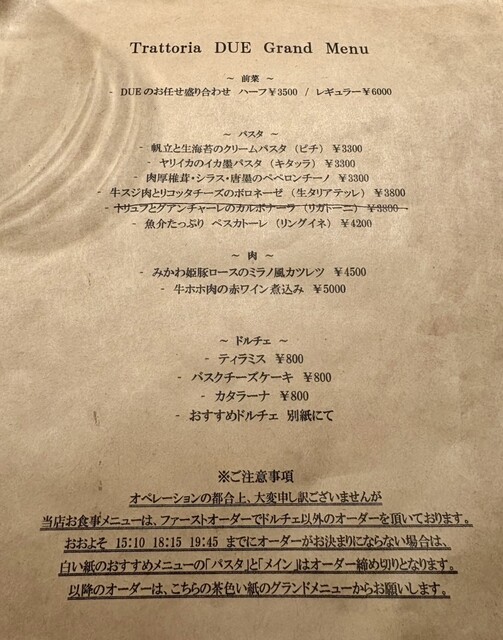 Trattoria DUE Grand Menu
～ 前菜 ～
- DUEのお任せ盛り合わせ ハーフ¥3500 / レギュラー¥6000
～ パスタ ～
- 帆立と生海苔のクリームパスタ（ピチ）¥3300
- ヤリイカのイカ墨パスタ（キタッラ）¥3300
- 肉厚椎茸・シラス・唐墨のペペロンチーノ ¥3300
- 牛スジ肉とリコッタチーズのボロネーゼ（生タリアテッレ）¥3800
- トリュフとグアンチャーレのカルボナーラ（リガトーニ）¥3800
- 魚介たっぷり ペスカトーレ（リングイネ）¥4200
～ 肉 ～
- みかわ姫豚ロースのミラノ風カツレツ ¥4500
- 牛ホホ肉の赤ワイン煮込み ¥5000
～ ドルチェ ～
- ティラミス ¥800
- バスクチーズケーキ ¥800
- カタラーナ ¥800
- おすすめドルチェ 別紙にて
※ご注意事項
オペレーションの都合上、大変申し訳ございませんが
当店お食事メニューは、ファーストオーダーでドルチェ以外のオーダーを頂いております。
おおよそ 15:10 18:15 19:45 までにオーダーがお決まりにならない場合は、
白い紙のおすすめメニューの「パスタ」と「メイン」はオーダー締め切りとなります。
以降のオーダーは、こちらの茶色い紙のグランドメニューからお願いします。